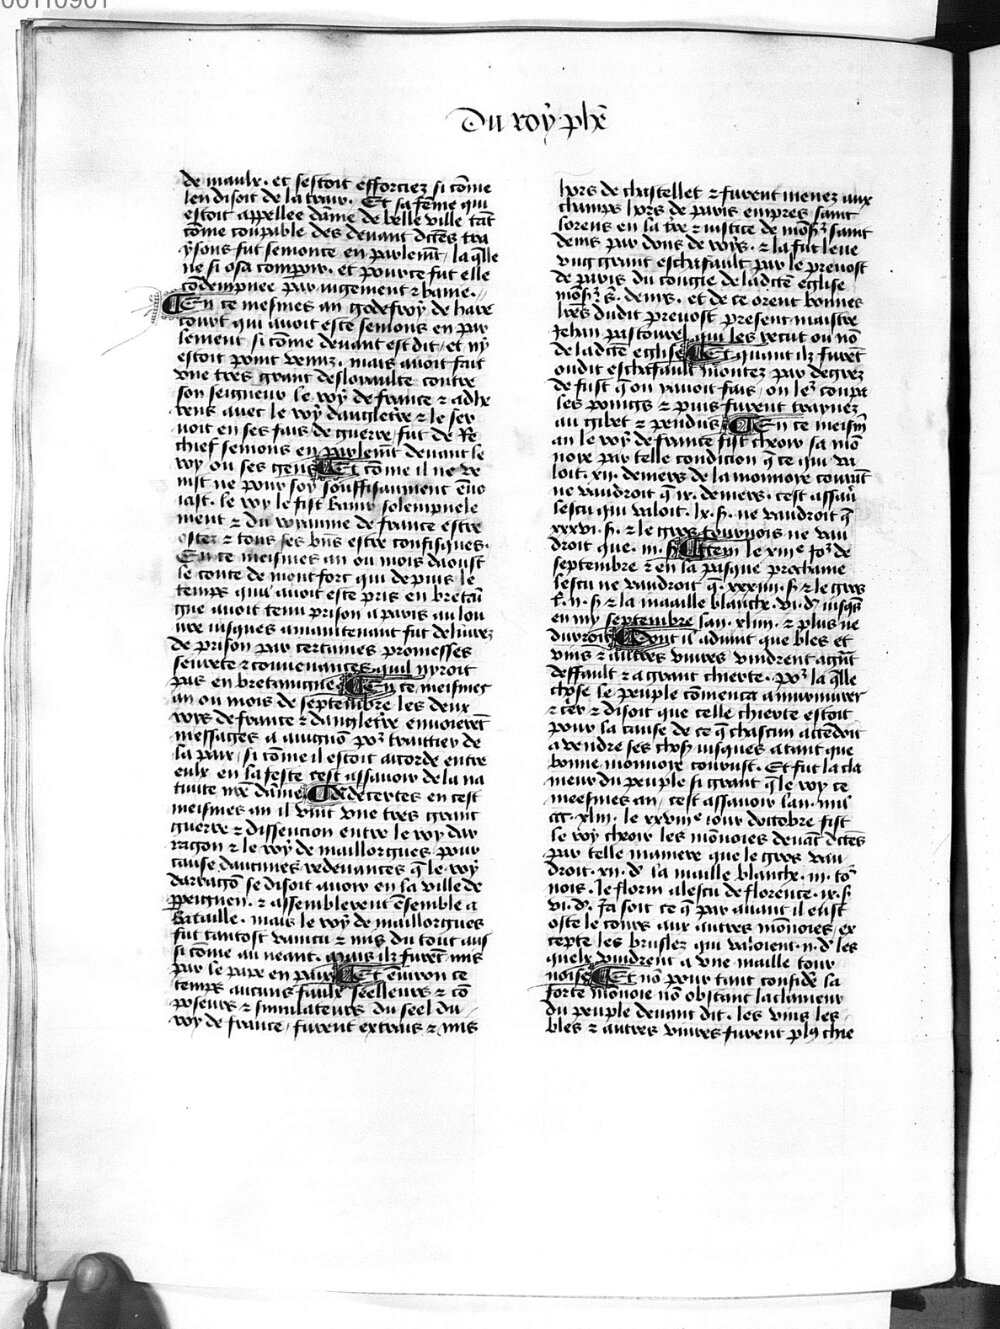 00110901
Du roy phe
de maulx. et sestoit efforciez si cõme
len disoit de la trair. Et sa fẽme qui
estoit appellee dame de belle ville tãt
cõme coupable des devant dictes tra
ysons fut semonce en parlemt, la qlle
ne si osa comparoir. et pource fut elle
cõdempnee par iugement & banie.
En ce mesmes an godefroy de hare
court qui avoit este semons en par
lement si cõme devant est dit, et ny
estoit point venuz. mais avoit fait
une tres grant desloyaulte contre
son seigneur le roy de france & adhe
rens avec le roy dangleterre & le ser
voit en ses fais de guerre, fut de Re
chief semons en parlemt devant le
roy ou ses gens Et cõme il ne ve
nist ne pour soy souffisaument ẽvo
iast. le roy le fist banir solempnele
ment & du royaume de france estre
ostez & tous ses bñs estre confisques.
En ce meismes an ou mois daoust
le conte de montfort qui depuis le
temps quil avoit este pris en bretai
gne avoit tenu prison a paris au lou
vre iusques a maintenant fut delivrez
de prison par certaines promesses
seurete & convenances quil nyroit
pas en bretaingne En ce meismes
an ou mois de septembre les deux
roys de france & dangletrẽ envoierẽt
messages a avignõ pour traittier de
la paix, si cõme il estoit acorde entre
eulx en la feste cest assavoir de la na
tivite nrẽ dame Adecertes en cest
meismes an il vint une tres grant
guerre & dissencion entre le roy dar
ragon & le roy de maillorgues, pour
cause daucunes redevances q̃ le roy
darragõ se disoit avoir en la ville de
ꝑpeignen. & assemblerent ẽsemble a
Bataille. mais le roy de maillorgues
fut tantost vaincu & mis du tout aus
si cõme au neant. puis ilz furẽt mis
par le pape en paix Et ẽviron ce
temps aucuns faulx seelleurs & cõ
poseurs & simulateurs du seel du
roy de france, furent extrais & mis
hors de chastellet & furent menez aux
champs hors de paris empres saint
lorens en la trẽ & iustice de mõsr saint
denis par dons de roys. & la fut leve
ung grant eschafault par le prevost
de paris du congie de ladictẽ eglise
mõsr s. denis. et de ce orent bonnes
lrẽs dudit prevost present maistre
Jehan pastourel, qui les recut ou nõ
de ladictẽ eglise Et quant ilz furẽt
oudit eschafault montez par degrez
de fust q̃ on y avoit fais, on leʳ coupa
les poings & puis furent traynez
au gibet & pendus En ce meismẽ
an le roy de france fist cheoir sa mõ
noie par telle condicion q̃ ce qui va
loit .xii. deniers de la monnoie courãt
ne vaudroit q̃ ix. deniers. cest assavr
lescu qui valoit .lx. s. ne vaudroit q̃
xxxvi. s. & le gros tournois ne vau
droit que .iii. s Item le xxiiᵉ jor de
septembre & en la pasque prochaine
lescu ne vaudroit q̃ .xxxiiii. s & le gros
& la maaille blanche .vi. d iusqs
en my septembre lan .xliiii. & plus ne
duroit Dont il avint que bles et
vins & autres vivres vindrent a grãt
deffault & a grant chierte. por la qlle
chose le peuple cõmenca a murmurer
& cer & disoit que celle chierte estoit
pour la cause de ce q̃ chascun attẽdoit
a vendre ses choses iusques a tant que
bonne monnoie courust. Et fut la cla
meur du peuple si grant q̃ le roy ce
meesmes an, cest assavoir lan. mil
ccc. xliii. le xxviiiᵉ iour doctobre fist
le roy cheoir les mõnoies devãt dctẽs
par telle maniere que le gros vau
droit .xii. dʳ la maille blanche .iii. tor
nois. le florin a lescu de florence .ix. s.
vi. d. Ja soit ce q̃ par avant il eust
oste le cours aux autres mõnoies ex
cepte les bruslez qui valoient .ii. dʳ les
quelx vindrent a une maille tour
noise Et nõ pour tant confide la
forte mõnoie nõ obstant la clameur
du peuple devant dit. les vins les
bles & autres vivres furent plꝰ chie